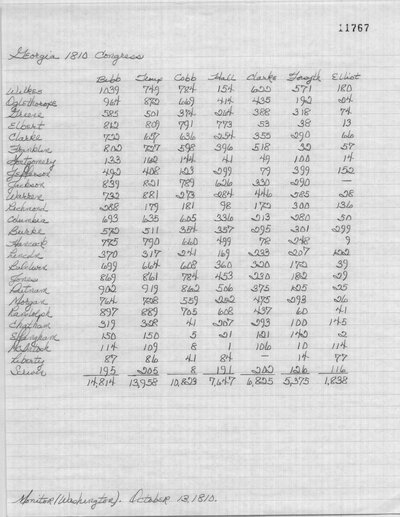 11767
Georgia 1810 Congress
Bibb Troup Cobb Hall Clarke Forsyth Elliot
Wilkes 1039 749 784 154 600 571 180
Oglethorpe 964 872 669 414 435 192 24
Greene 585 501 374 264 388 318 74
Elbert 812 809 791 773 53 38 13
Clarke 722 657 636 254 355 290 66
Franklin 802 727 598 396 518 32 57
Montgomery 133 162 144 41 49 100 14
Jefferson 492 408 123 299 79 399 152
Jackson 839 821 789 626 330 290 —
Warren 732 881 273 284 446 285 28
Richmond 288 179 181 98 172 300 136
Columbia 693 635 605 336 213 280 50
Burke 572 511 384 357 295 301 299
Hancock 775 790 660 499 78 248 9
Lincoln 370 317 241 169 233 207 122
Baldwin 699 664 608 360 320 172 39
Jones 869 861 784 453 230 182 29
Putnam 902 919 862 506 375 125 25
Morgan 764 728 559 202 475 293 26
Randolph 897 889 705 608 437 60 41
Chatham 319 328 41 267 293 100 145
Effingham 150 150 5 21 121 142 2
McIntosh 114 109 8 1 106 10 114
Liberty 87 86 41 84 — 14 77
Screven 195 205 8 191 202 126 116
14,814 13,958 10,823 7,647 6,825 5,375 1,838
Monitor (Washington). October 13, 1810.